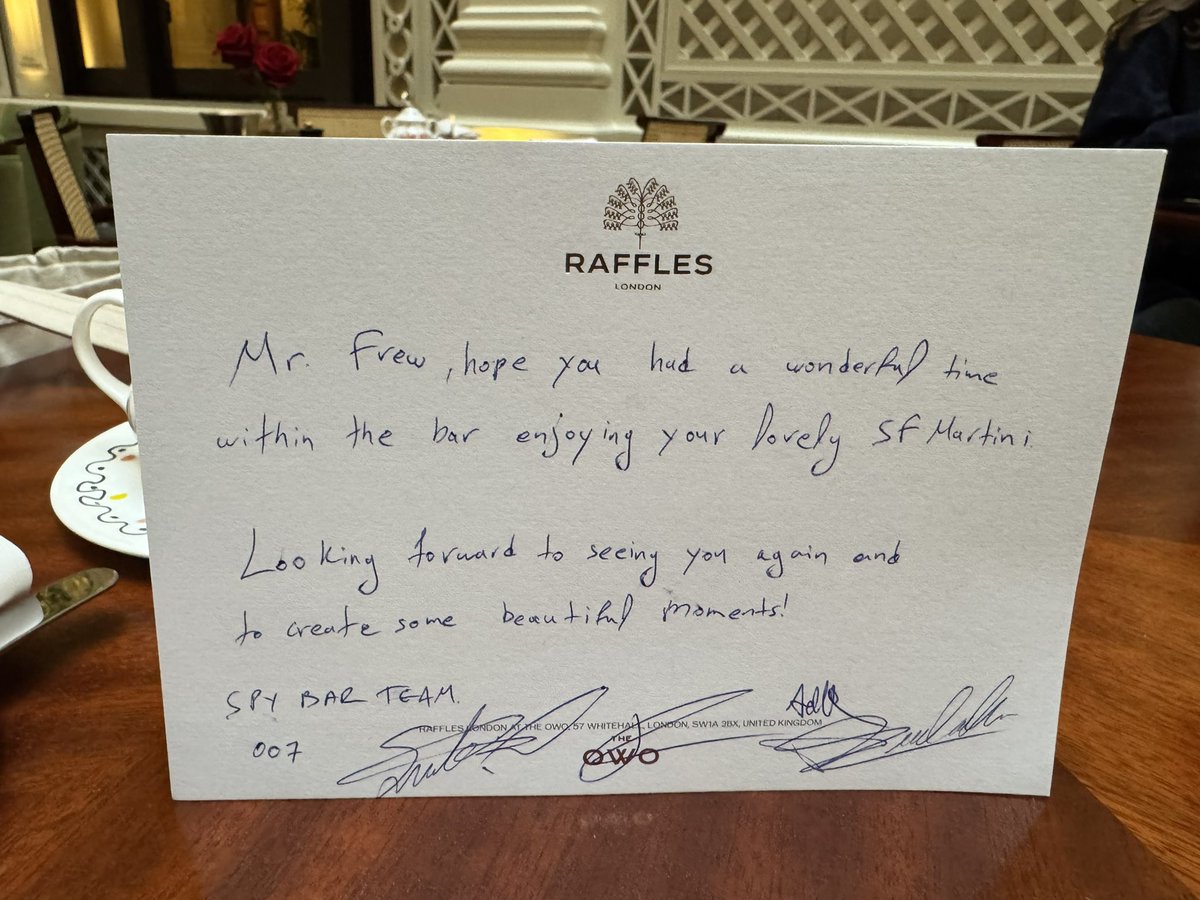 RAFFLES
LONDON
Mr. Frew, hope you had a wonderful time
within the bar enjoying your lovely SF Martini.
Looking forward to seeing you again and
to create some beautiful moments!
SPY BAR TEAM.
007
RAFFLES LONDON AT THE OWO, 57 WHITEHALL, LONDON, SW1A 2BX, UNITED KINGDOM
THE
OWO